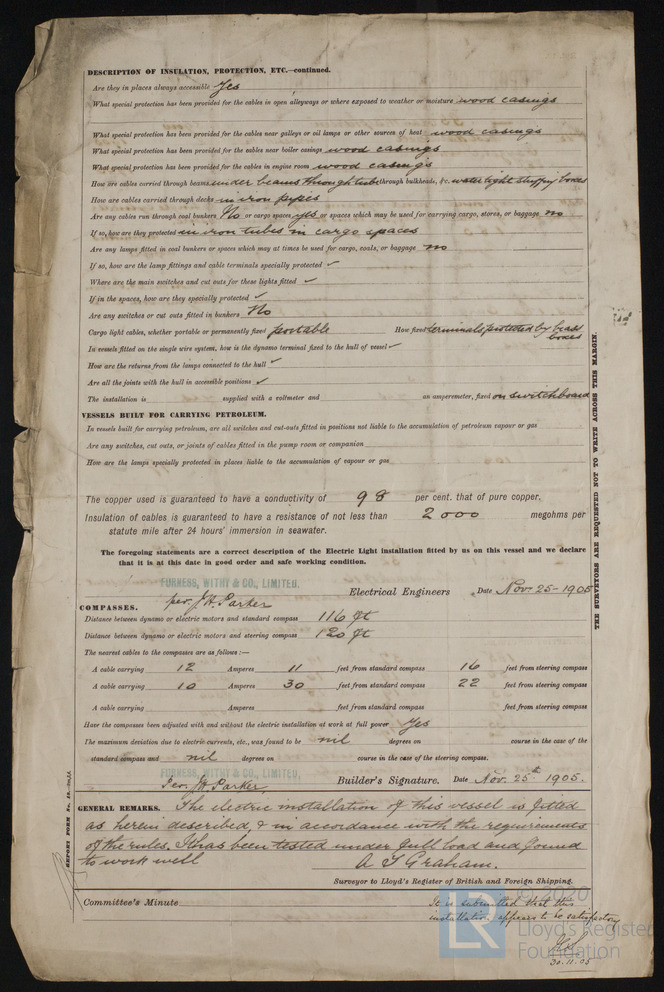 DESCRIPTION OF INSULATION, PROTECTION, ETC.—continued.
Are they in places always accessible Yes
What special protection has been provided for the cables in open alleyways or where exposed to weather or moisture wood casings
What special protection has been provided for the cables near galleys or oil lamps or other sources of heat wood casings
What special protection has been provided for the cables near boiler casings wood casings
What special protection has been provided for the cables in engine room wood casings
How are cables carried through beams under beams through tube through bulkheads, &c. watertight stuffing boxes
How are cables carried through decks in iron pipes
Are any cables run through coal bunkers No or cargo spaces yes or spaces which may be used for carrying cargo, stores, or baggage no
If so, how are they protected in iron tubes in cargo spaces
Are any lamps fitted in coal bunkers or spaces which may at times be used for cargo, coals, or baggage no
If so, how are the lamp fittings and cable terminals specially protected ✓
Where are the main switches and cut outs for these lights fitted ✓
If in the spaces, how are they specially protected ✓
Are any switches or cut outs fitted in bunkers No
Cargo light cables, whether portable or permanently fixed portable How fixed terminals protected by brass boxes
In vessels fitted on the single wire system, how is the dynamo terminal fixed to the hull of vessel ✓
How are the returns from the lamps connected to the hull ✓
Are all the joints with the hull in accessible positions ✓
The installation is supplied with a voltmeter and an amperemeter, fixed on switchboard
VESSELS BUILT FOR CARRYING PETROLEUM.
In vessels built for carrying petroleum, are all switches and cut-outs fitted in positions not liable to the accumulation of petroleum vapour or gas
Are any switches, cut outs, or joints of cables fitted in the pump room or companion
How are the lamps specially protected in places liable to the accumulation of vapour or gas
The copper used is guaranteed to have a conductivity of 98 per cent. that of pure copper.
Insulation of cables is guaranteed to have a resistance of not less than 2000 megohms per
statute mile after 24 hours' immersion in seawater.
The foregoing statements are a correct description of the Electric Light installation fitted by us on this vessel and we declare
that it is at this date in good order and safe working condition.
FURNESS, WITHY & CO., LIMITED.
per. J.H. Parker Electrical Engineers Date Nov. 25 - 1905
COMPASSES.
Distance between dynamo or electric motors and standard compass 116 ft
Distance between dynamo or electric motors and steering compass 120 ft
The nearest cables to the compasses are as follows:—
A cable carrying 12 Amperes 11 feet from standard compass 16 feet from steering compass
A cable carrying 10 Amperes 30 feet from standard compass 22 feet from steering compass
A cable carrying Amperes feet from standard compass feet from steering compass
Have the compasses been adjusted with and without the electric installation at work at full power Yes
The maximum deviation due to electric currents, etc., was found to be nil degrees on course in the case of the
standard compass and nil degrees on course in the case of the steering compass.
FURNESS, WITHY & CO., LIMITED.
Per. J.H. Parker Builder's Signature. Date Nov. 25th 1905.
GENERAL REMARKS. The electric installation of this vessel is fitted
as herein described, & in accordance with the requirements
of the rules, It has been tested under full load and found
to work well
A T Graham.
Surveyor to Lloyd's Register of British and Foreign Shipping.
Committee's Minute
It is submitted that this
installation appears to be satisfactory
30.11.05
THE SURVEYORS ARE REQUESTED NOT TO WRITE ACROSS THIS MARGIN.
LR
© 2020
Lloyd's Register
Foundation